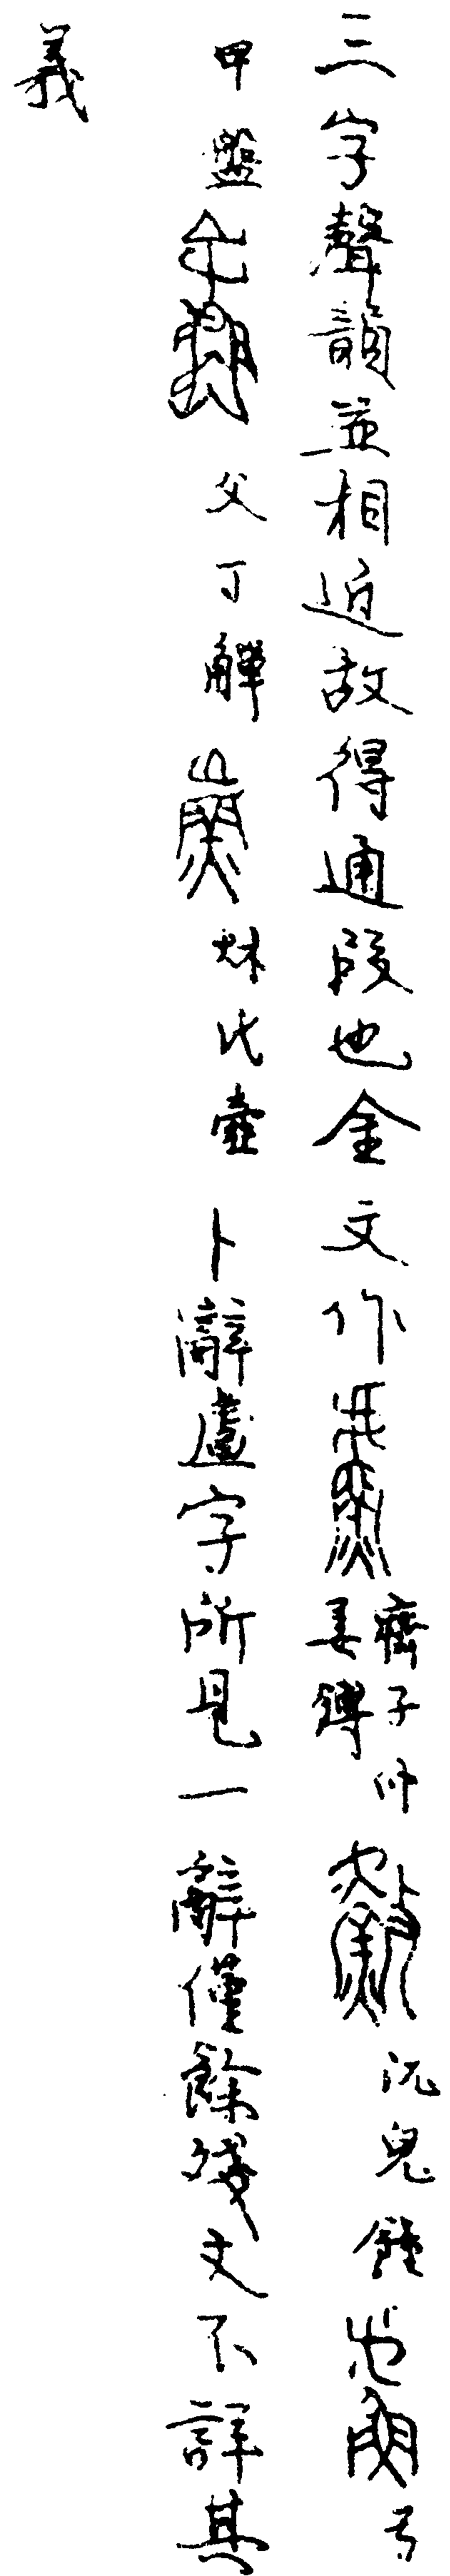 三字聲韻並相近故得通叚也金文作齊子仲姜鎛沇兒鐘兮
甲盤父丁觶杕氏壺卜辭字所見一辭僅餘殘文不詳其
義